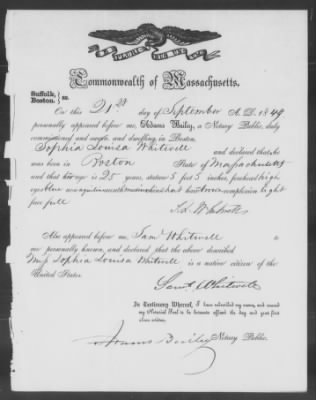 E PLURIBUS UNUM
Commonwealth of Massachusetts.
Suffolk,
Boston. } ss.
On this 21st day of September A. D. 1849
personally appeared before me, Adams Bailey, a Notary Public, duly
commissioned and sworn, and dwelling in Boston.
Sophia Louisa Whitwell and declared that she
was born in Boston State of Massachusetts
and that her age is 25 years, stature 5 feet 5 inches, forehead high
eyes blue nose mouth chin hair brown complexion light
face full
S. L. Whitwell
Also appeared before me, Sam Whitwell to
me personally known, and declared that the above described
Miss Sophia Louisa Whitwell is a native citizen of the
United States.
Saml Whitwell
In Testimony Whereof, I have subscribed my name, and caused
my Notarial Seal to be hereunto affixed the day and year first
above written.
Adams Bailey Notary Public.